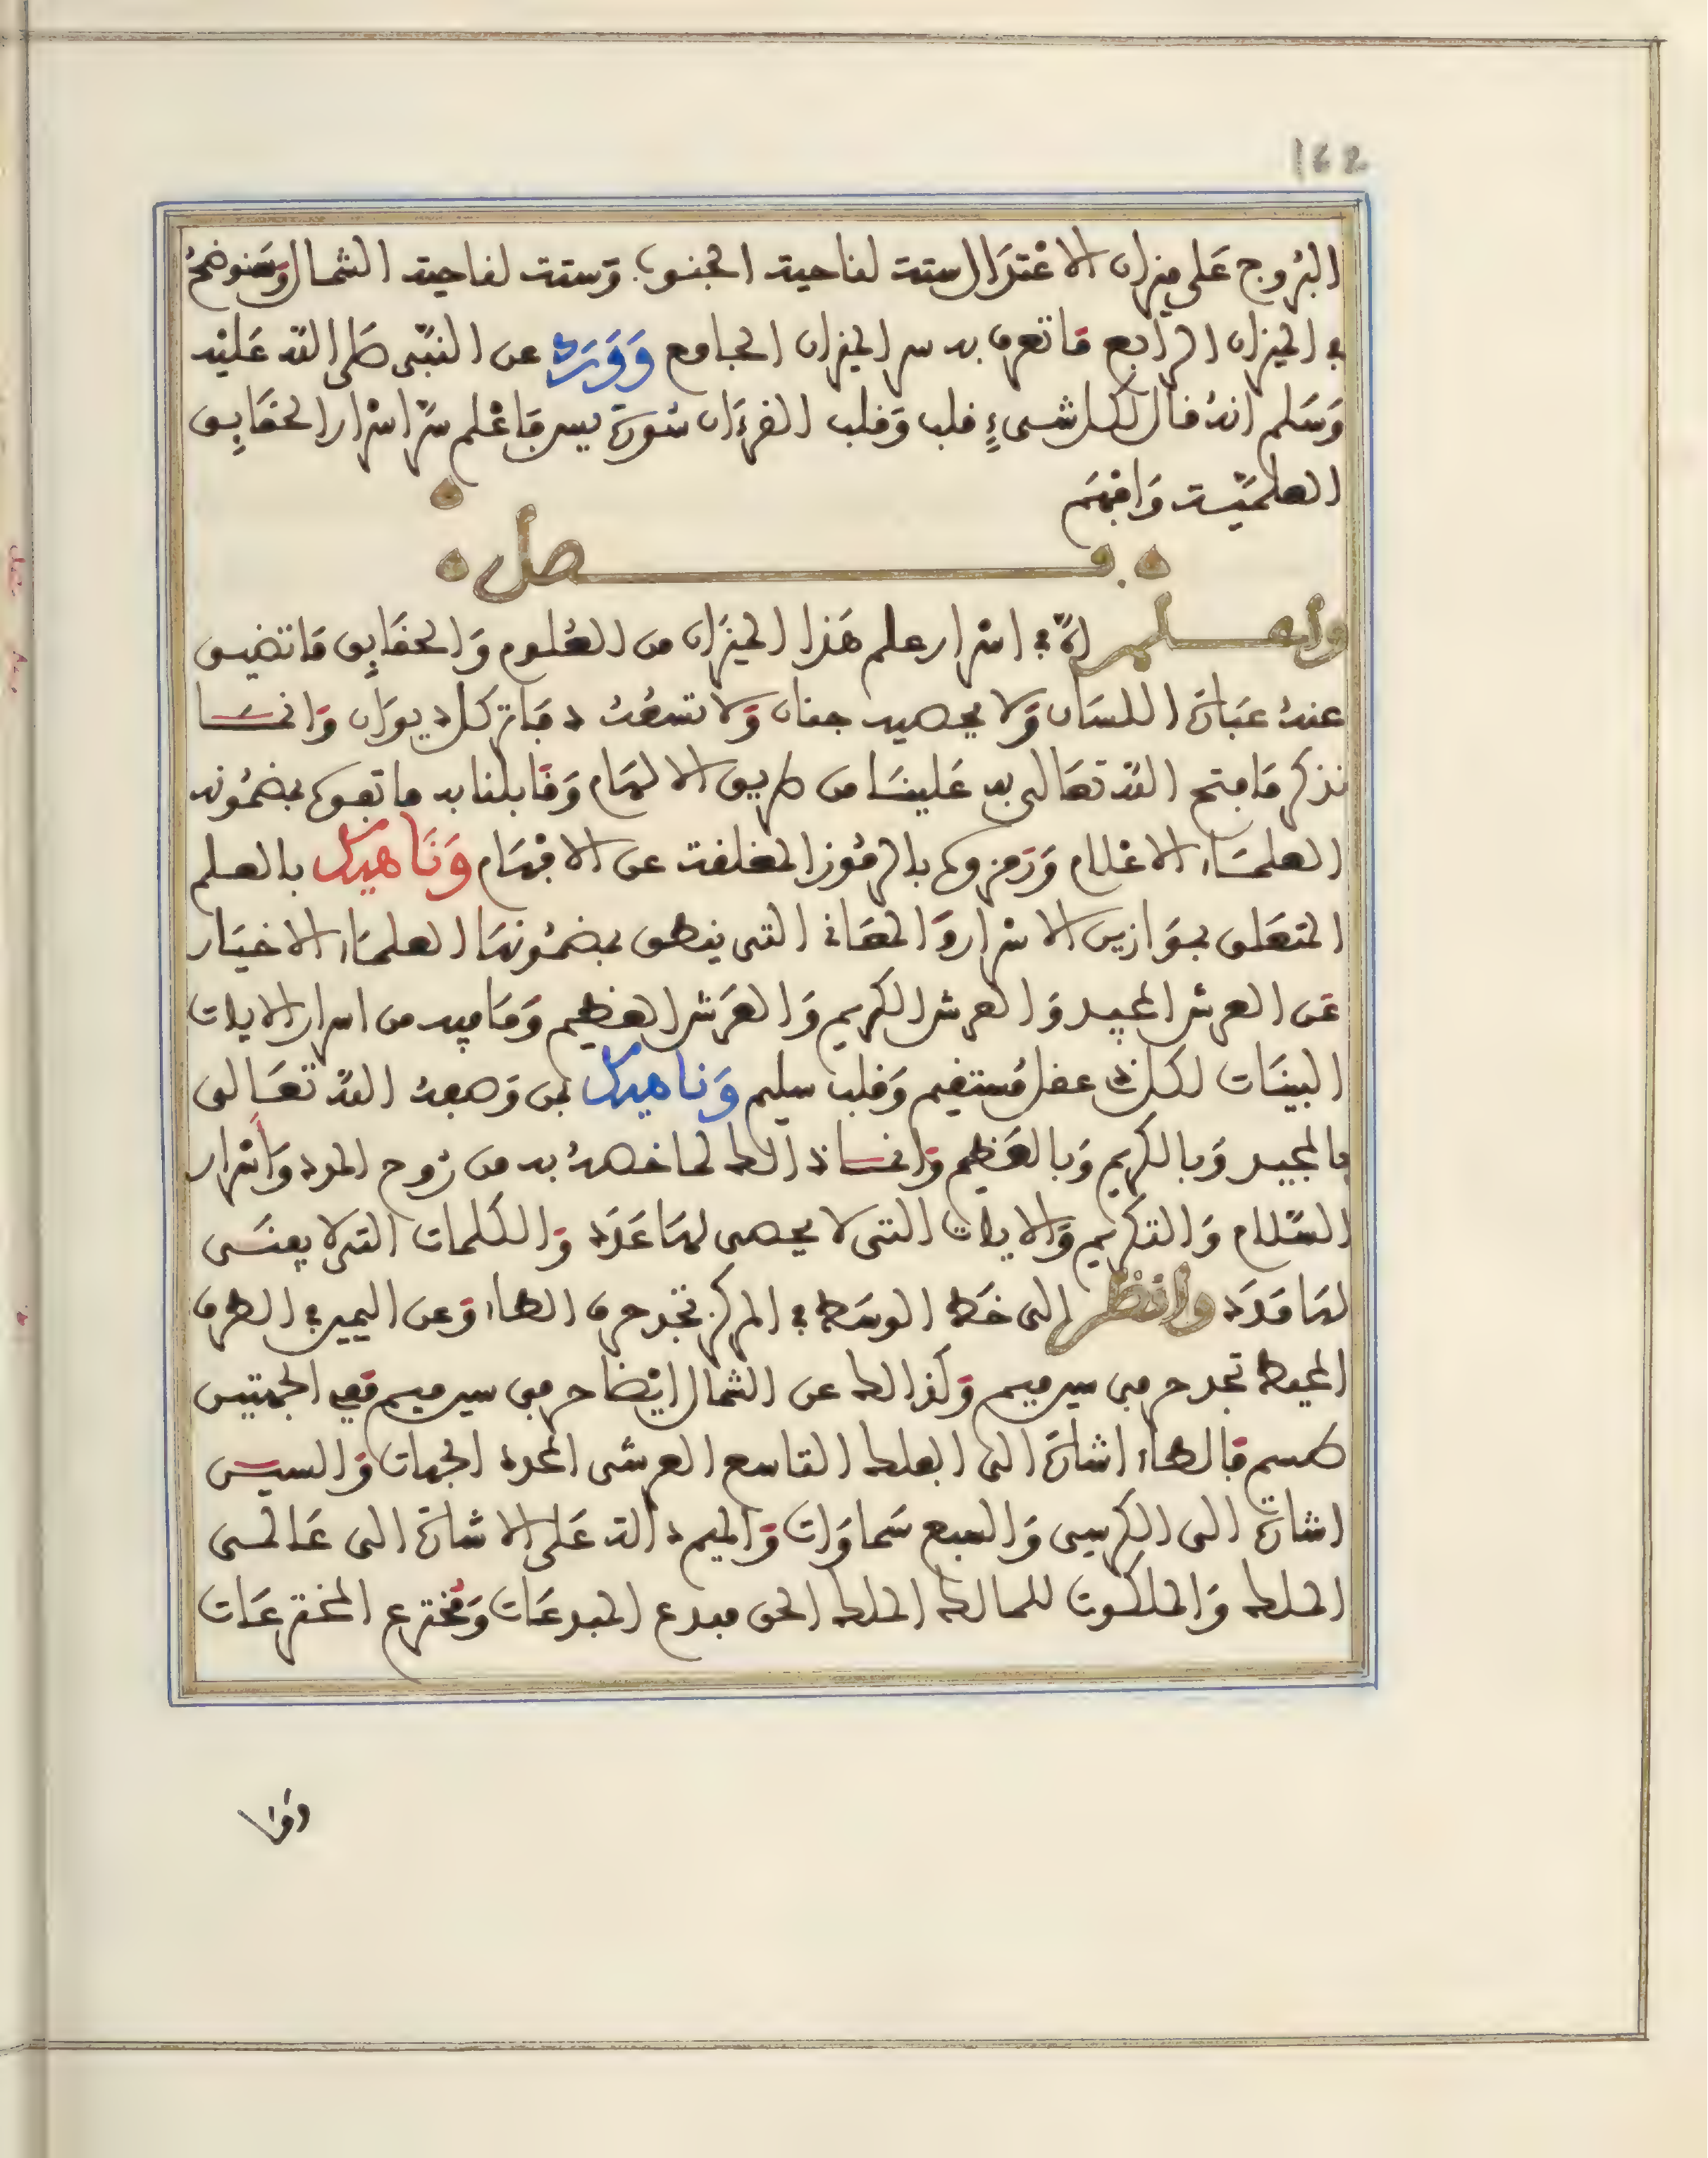 162
البُروج عَلى ميزان الاعْتدَال ستة لناحية الجنوب وَستة لناحية الشمال وَسَنوضحُ
في الميزان الرابع مَا تعرف به سر الميزان الجامع وَوَرَدَ عن النبّى صَلى اللّه عَليْه
وَسَلم انهُ قال لكل شىءٍ قلب وَقلب القرءان سُورَة يس فَاعْلم سرّ اسْرار الحقَايِق
العلميّة وَافهَم
فصل
واعلم انّ في اسْرار علم هَذا الميزَان من العُلوم وَالحقَايِق مَا تضيق
عندهُ عبَارَة اللسَان وَلا يحصيه جنان وَلا تسعُهُ دفَاتر كل ديوَان وَانمَا
نذكر مَا فتح اللّه تعَالى به عَلينَا من طريق الالهَام وَقَابلنا به ما تفوه بمضمُونه
العلمَاء الاعْلام وَرَمزوه بالرمُوز المغلقة عن الافهَام وَنَاهيكَ بالعلم
المتعَلق بموَازين الاسْرار وَالمعَاني التى ينطق بمضمُونهَا العلمَاء الاخيَار
عَن العرش المجيد وَالعرش الكريم وَالعَرَش العَظيم وَمَا فيه من اسرار الايات
البينَات لكل ذى عقل مُستقيم وَقلب سليم وَنَاهيكَ بمن وَصفهُ اللّه تعَالى
بالمجيد وَبالكريم وَبالعَظيم وَانمَا ذالك لما خصهُ به من رُوح المدد وَاسْرار
السّلام وَالتكريم وَالايات التى لا يحصى لهَا عَدَد وَالكلمات التى لا يفنَى
لهَا مَدَد وانظر إلى خَط الوسَط في المركز تجد حرف الطاء وَعن اليمين في الطرف
المحيط تجد حرفى سين ميم وَكذالك عن الشمال ايْضا حرفى سين ميم ففي الجهتين
طسم فَالطاء اشارَة الى الفلك التاسع العرشى المحدد الجهات وَالسين
اشارَة الى الكرسى وَالسبع سَماوَات وَالميم دالة عَلى الاشارَة الى عَالمى
الملك وَالملكوت للمالك الملك الحق مبدع المبدعَات وَمُخترع المخترعَات